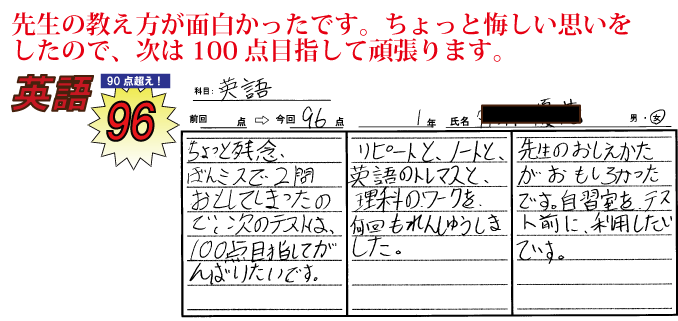 先生の教え方が面白かったです。ちょっと悔しい思いを
したので、次は100点目指して頑張ります。
英語
90点超え！
96
科目: 英語
前回 点 ⇨ 今回 96 点 1 年 氏名 男・女
ちょっと残念、
ぽんミスで2問
おとしてしまったの
で、次のテストは、
100点目指してが
んばりたいです。
リピートと、ノートと、
英語のトレマスと、
理科のワークを
何回もれんしゅうしま
した。
先生のおしえかた
がおもしろかった
です。自習室を、テス
ト前に、利用したい
です。